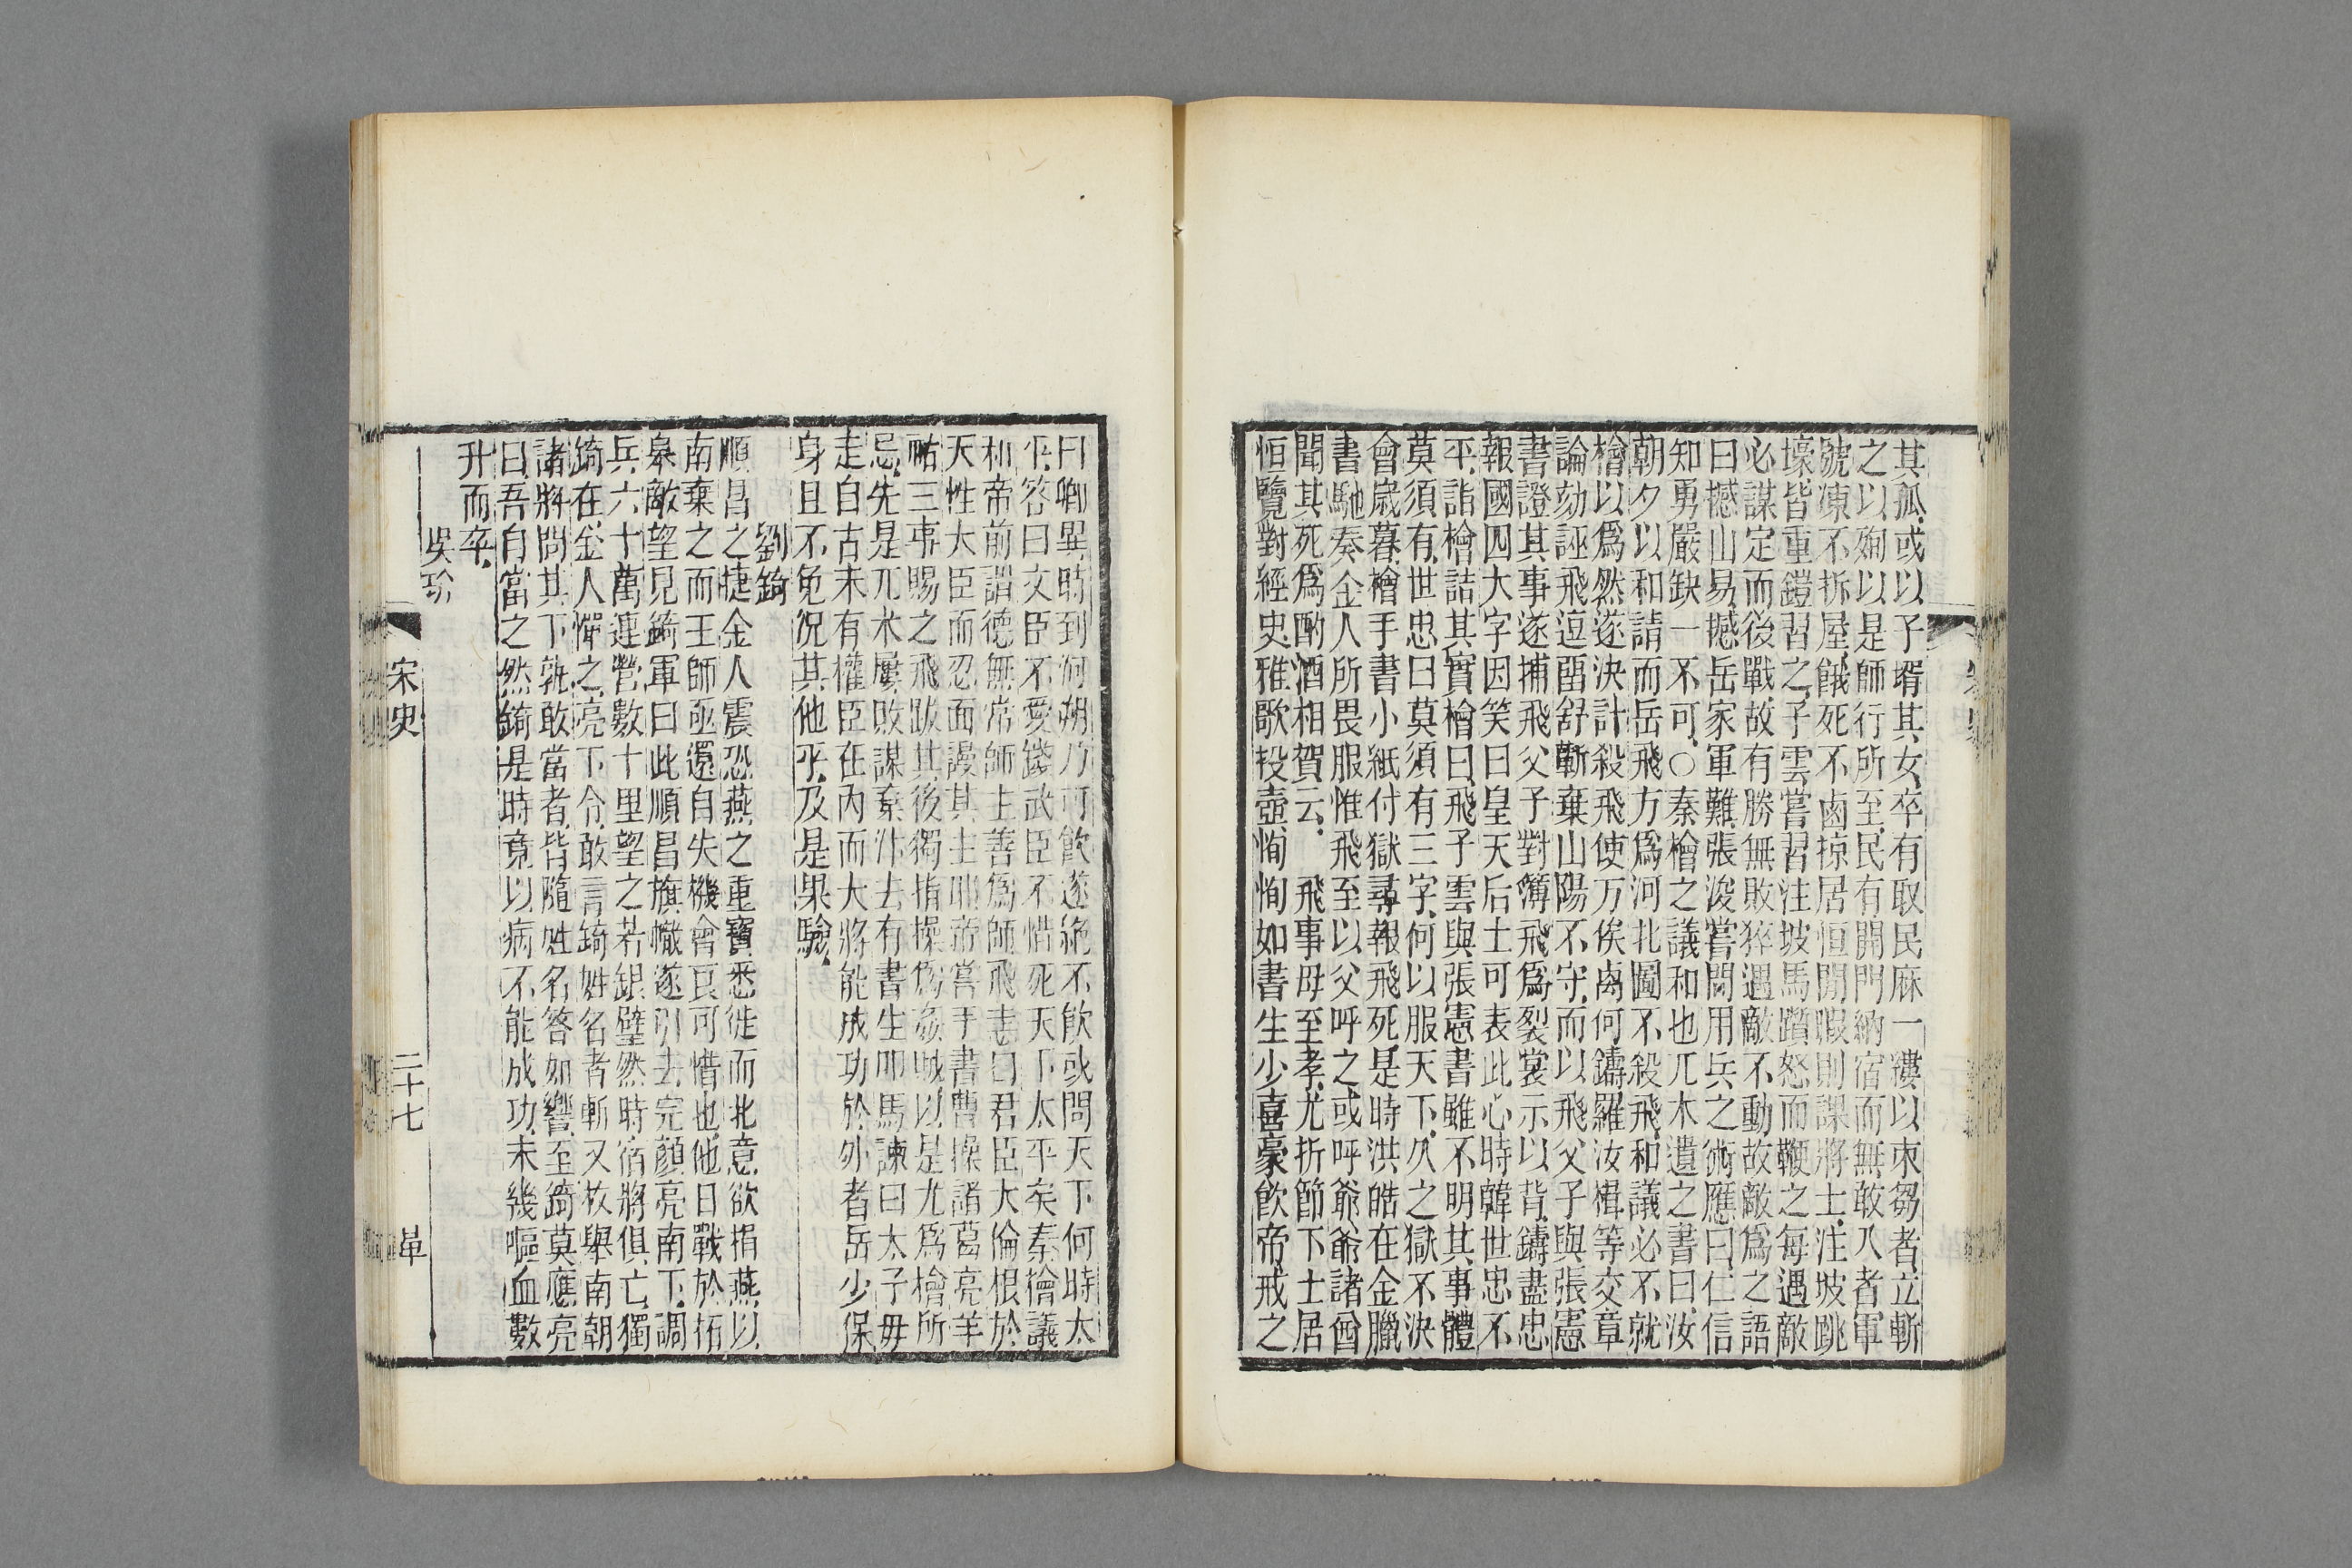 其孤或以子壻其女卒有取民麻一縷以束芻者立斬
之以殉以是師行所至民有開門納宿而無敢入者軍
號凍不拆屋餓死不鹵掠居恒閒暇則課將士注坡跳
壕皆重鎧習之子雲嘗習注坡馬躓怒而鞭之每遇敵
必謀定而後戰故有勝無敗猝遇敵不動故敵爲之語
曰撼山易撼岳家軍難張浚嘗問用兵之術應曰仁信
知勇嚴缺一不可〇秦檜之議和也兀朮遺之書曰汝
朝夕以和請而岳飛方爲河北圖不殺飛和議必不就
檜以爲然遂決計殺飛使万俟卨何鑄羅汝楫等交章
論劾誣飛逗遛舒蘄棄山陽不守而以飛父子與張憲
書證其事遂捕飛父子對簿飛爲裂裳示以背鑄盡忠
報國四大字因笑曰皇天后土可表此心時韓世忠不
平詣檜詰其實檜曰飛子雲與張憲書雖不明其事體
莫須有世忠曰莫須有三字何以服天下久之獄不決
會歲暮檜手書小紙付獄尋報飛死是時洪皓在金臘
書馳奏金人所畏服惟飛至以父呼之或呼爺爺諸酋
聞其死爲酌酒相賀云　飛事母至孝尤折節下士居
恒覽對經史雅歌投壺恂恂如書生少喜豪飲帝戒之
曰卿異時到河朔乃可飲遂絶不飲或問天下何時太
平答曰文臣不愛錢武臣不惜死天下太平矣秦檜議
和帝前謂德無常師主善爲師飛恚曰君臣大倫根於
天性大臣而忍面謾其主耶帝嘗手書曹操諸葛亮羊
祜三事賜之飛跋其後獨指操爲姦賊以是尤爲檜所
忌先是兀朮屢敗謀棄汴去有書生叩馬諫曰太子毋
走自古未有權臣在內而大將能成功於外者岳少保
身且不免況其他乎及是果驗
劉錡
順昌之捷金人震恐燕之重寶悉徙而北意欲捐燕以
南棄之而王師亟還自失機會良可惜也他日戰於柘
皋敵望見錡軍曰此順昌旗幟遂引去完顏亮南下調
兵六十萬連營數十里望之若銀壁然時宿將俱亡獨
錡在金人憚之亮下令敢言錡姓名者斬又枚舉南朝
諸將問其下孰敢當者皆隨姓名答如響至錡莫應亮
曰吾自當之然錡是時竟以病不能成功未幾嘔血數
升而卒
吳玠
宋史　二十七